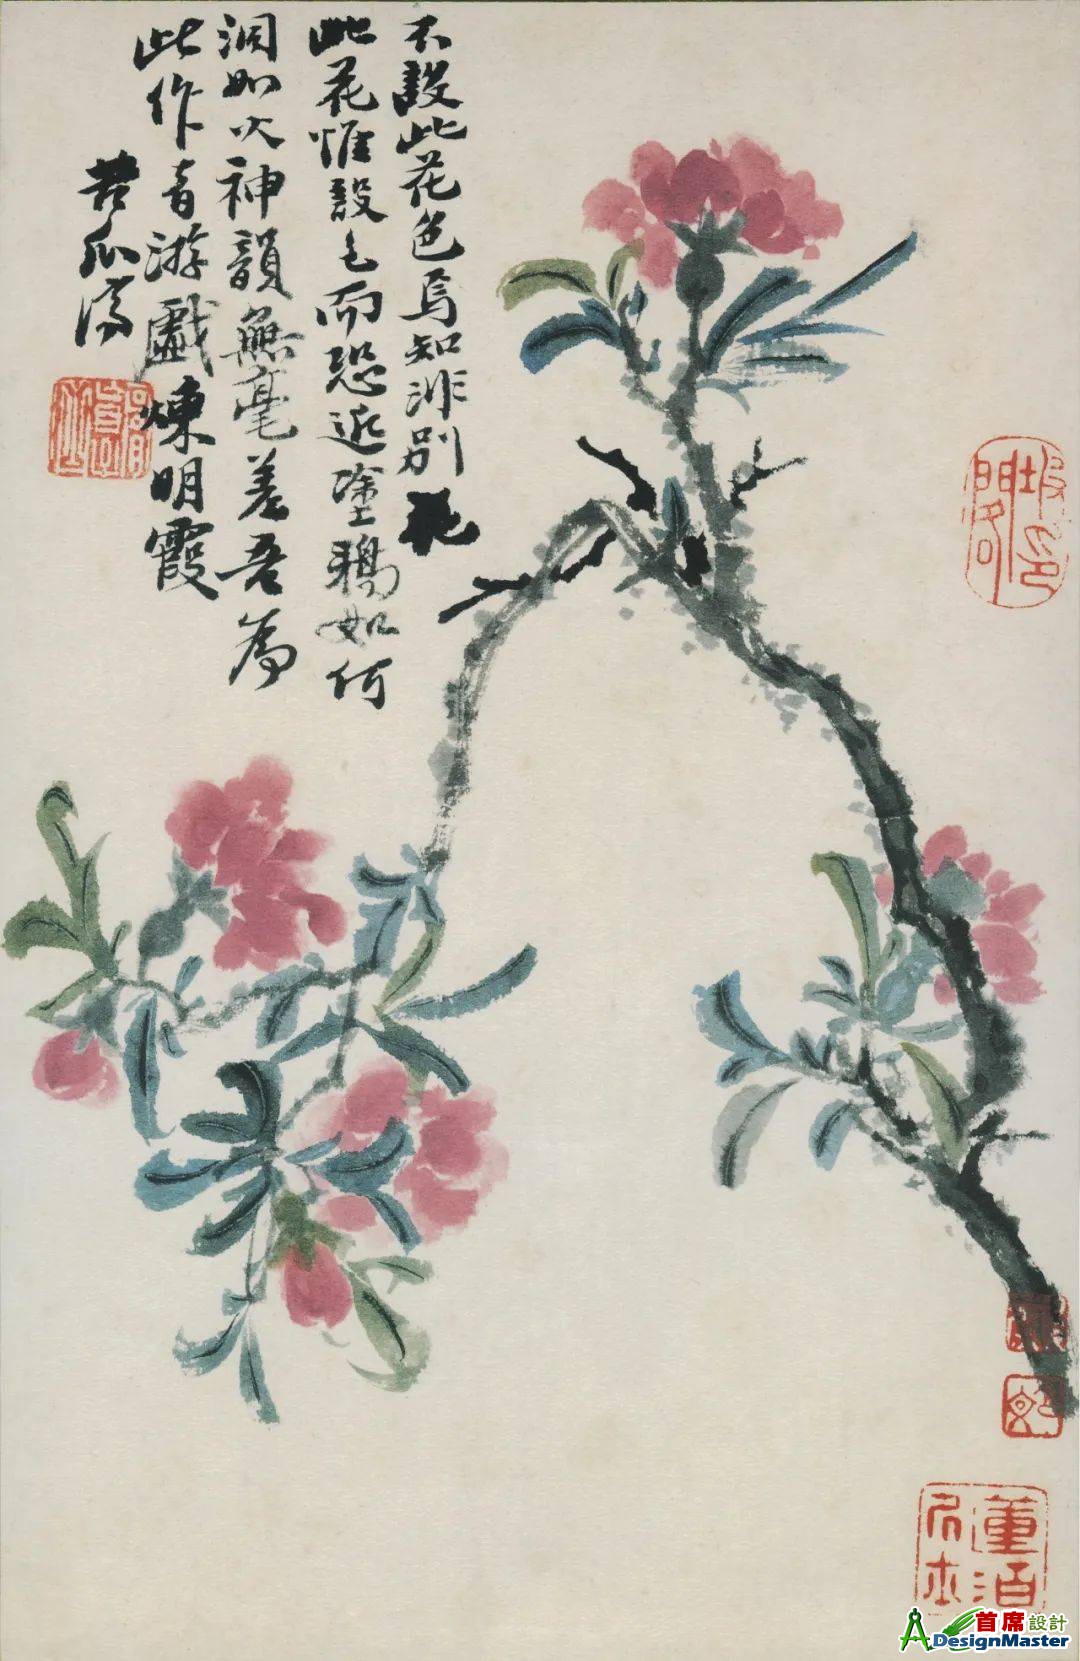 不設此花色焉知非別花
此花惟設色而恐近塗鴉如何
洞如火神韻無毫差吾為
此作音游戲煉明霞
苦瓜濟
首席設計
DesignMaster